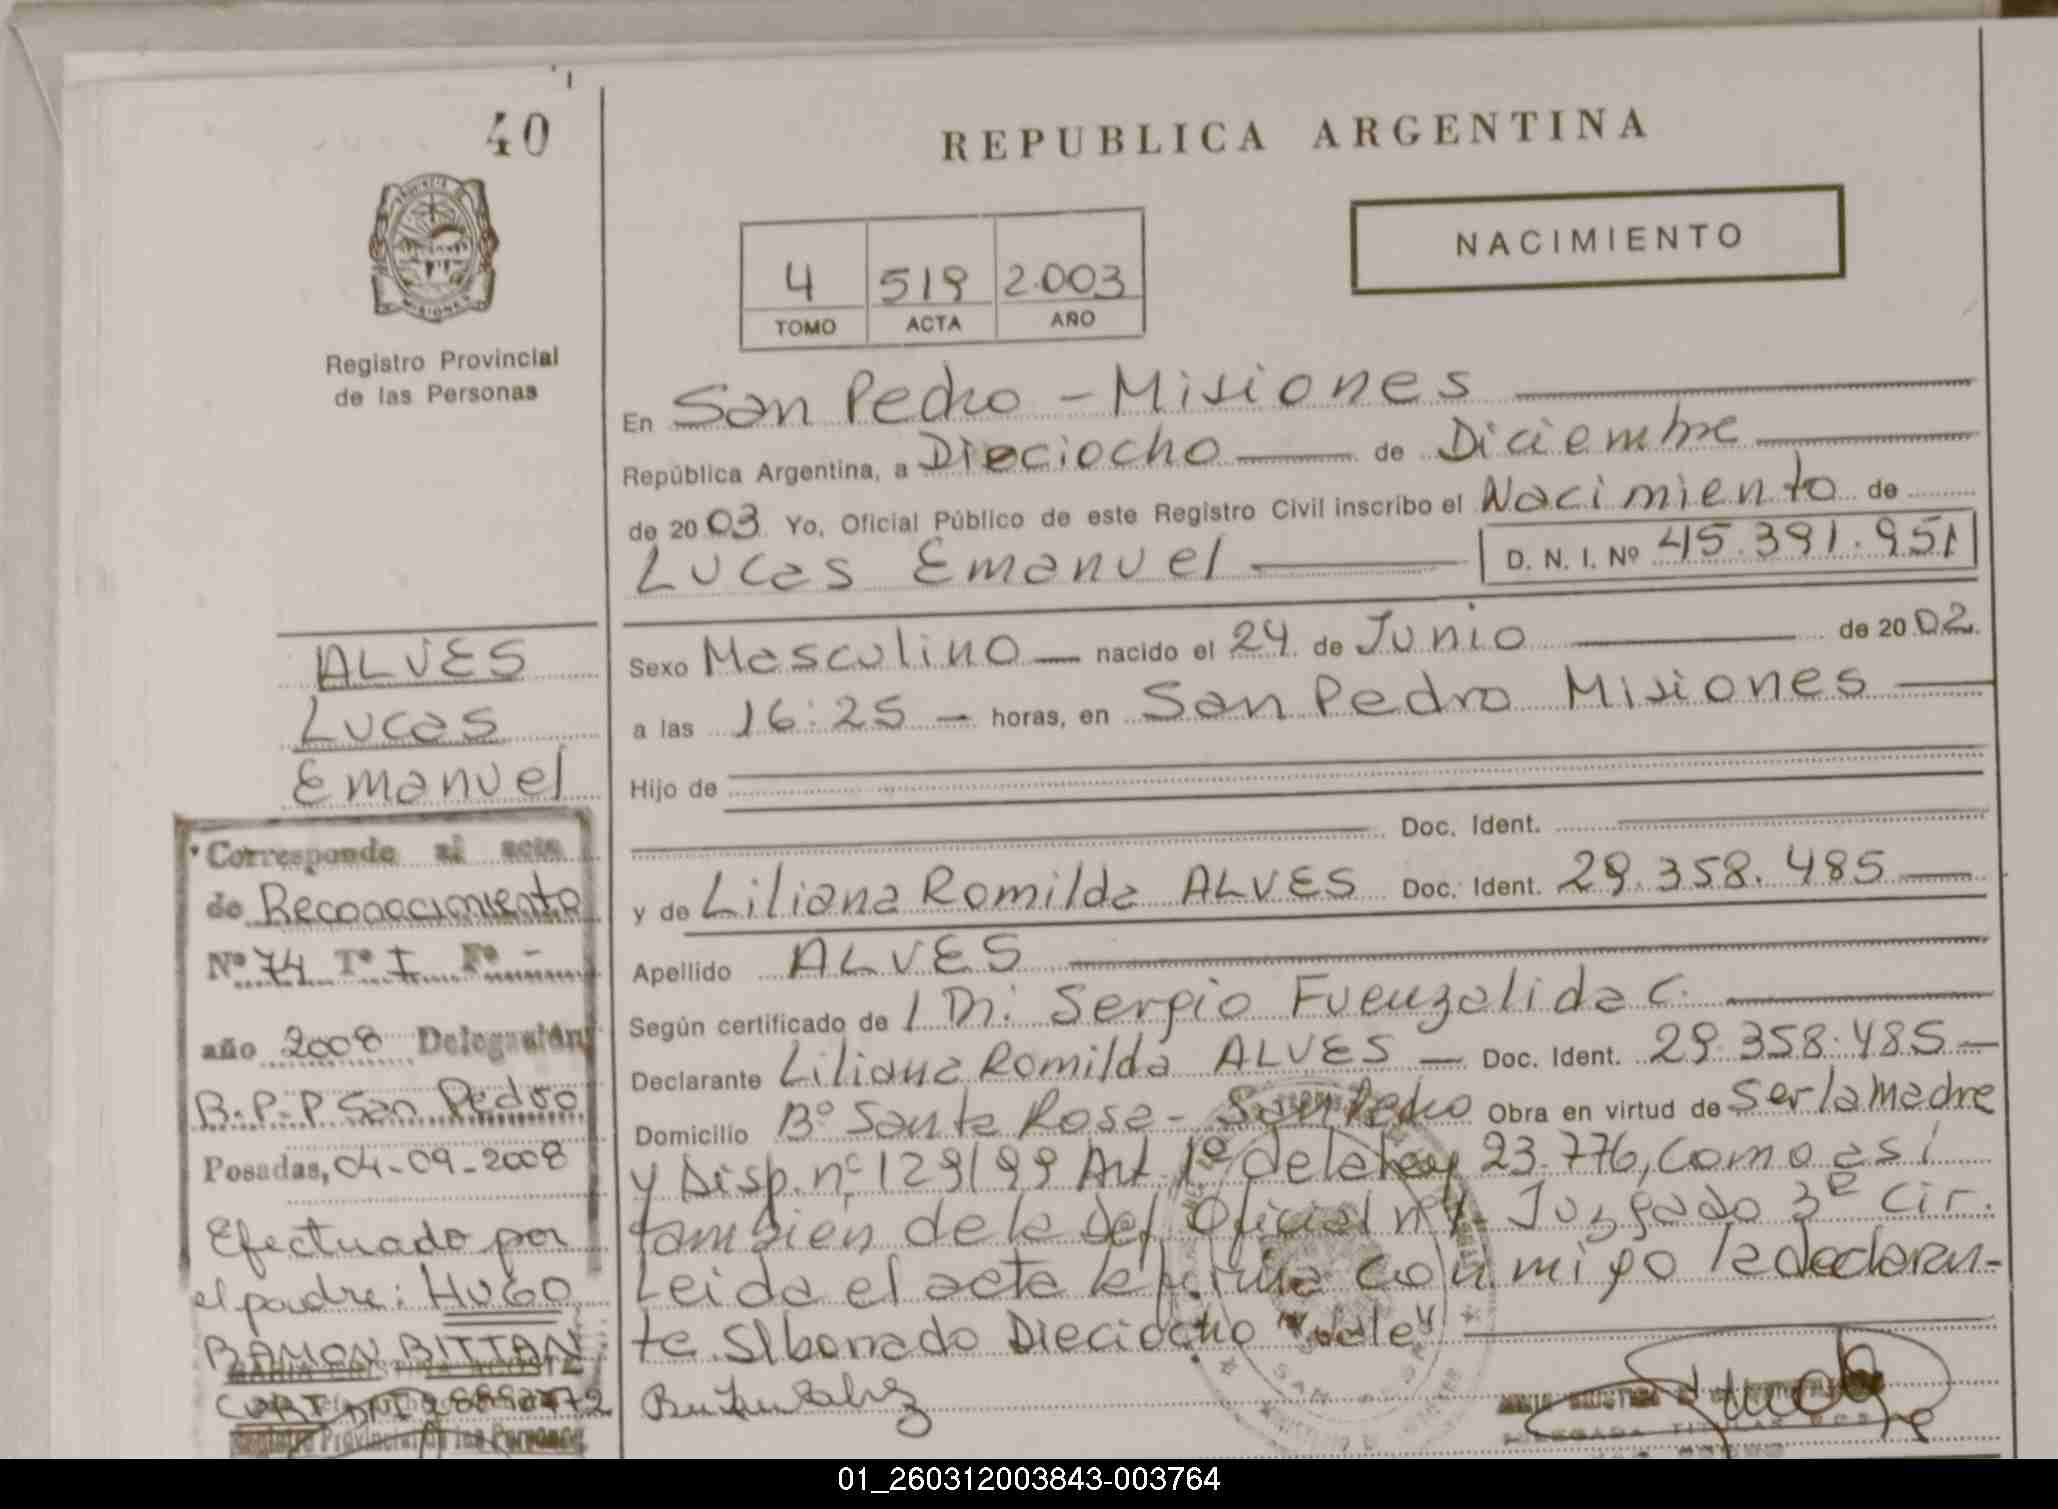 40
REPUBLICA ARGENTINA
NACIMIENTO
4 519 2.003
TOMO ACTA AÑO
Registro Provincial
de las Personas
En San Pedro - Misiones
República Argentina, a Dieciocho de Diciembre
de 2003 Yo, Oficial Público de este Registro Civil inscribo el Nacimiento de
Lucas Emanuel D. N. I. Nº 45.391.951
Sexo Masculino nacido el 24 de Junio de 2002
a las 16:25 - horas, en San Pedro Misiones
Hijo de
Doc. Ident.
y de Liliana Romilda ALVES Doc. Ident. 29.358.485
Apellido ALVES
Según certificado de / Dr. Sergio Fuenzalida C.
Declarante Liliana Romilda ALVES - Doc. Ident. 29.358.485
Domicilio Bº Santa Rosa - San Pedro Obra en virtud de ser la madre
y Disp. nº 129/99 Art 1º de la Ley 23.776, como asi
tambien de la Def. Oficial nº 1 Juzgado 3º Cir.
Leida el acta la firma conmigo la declaran-
te. S/borrado Dieciocho "Vale"
ALVES
Lucas
Emanuel
Corresponde al acta
de Reconocimiento
Nº 74 Tº I Fº -
año 2008 Delegación
B.P.P San Pedro
Posadas, 04-09-2008
Efectuado por
el padre: HUGO
RAMON BITTAN
Registro Provincial de las Personas
SAN PEDRO
01_260312003843-003764